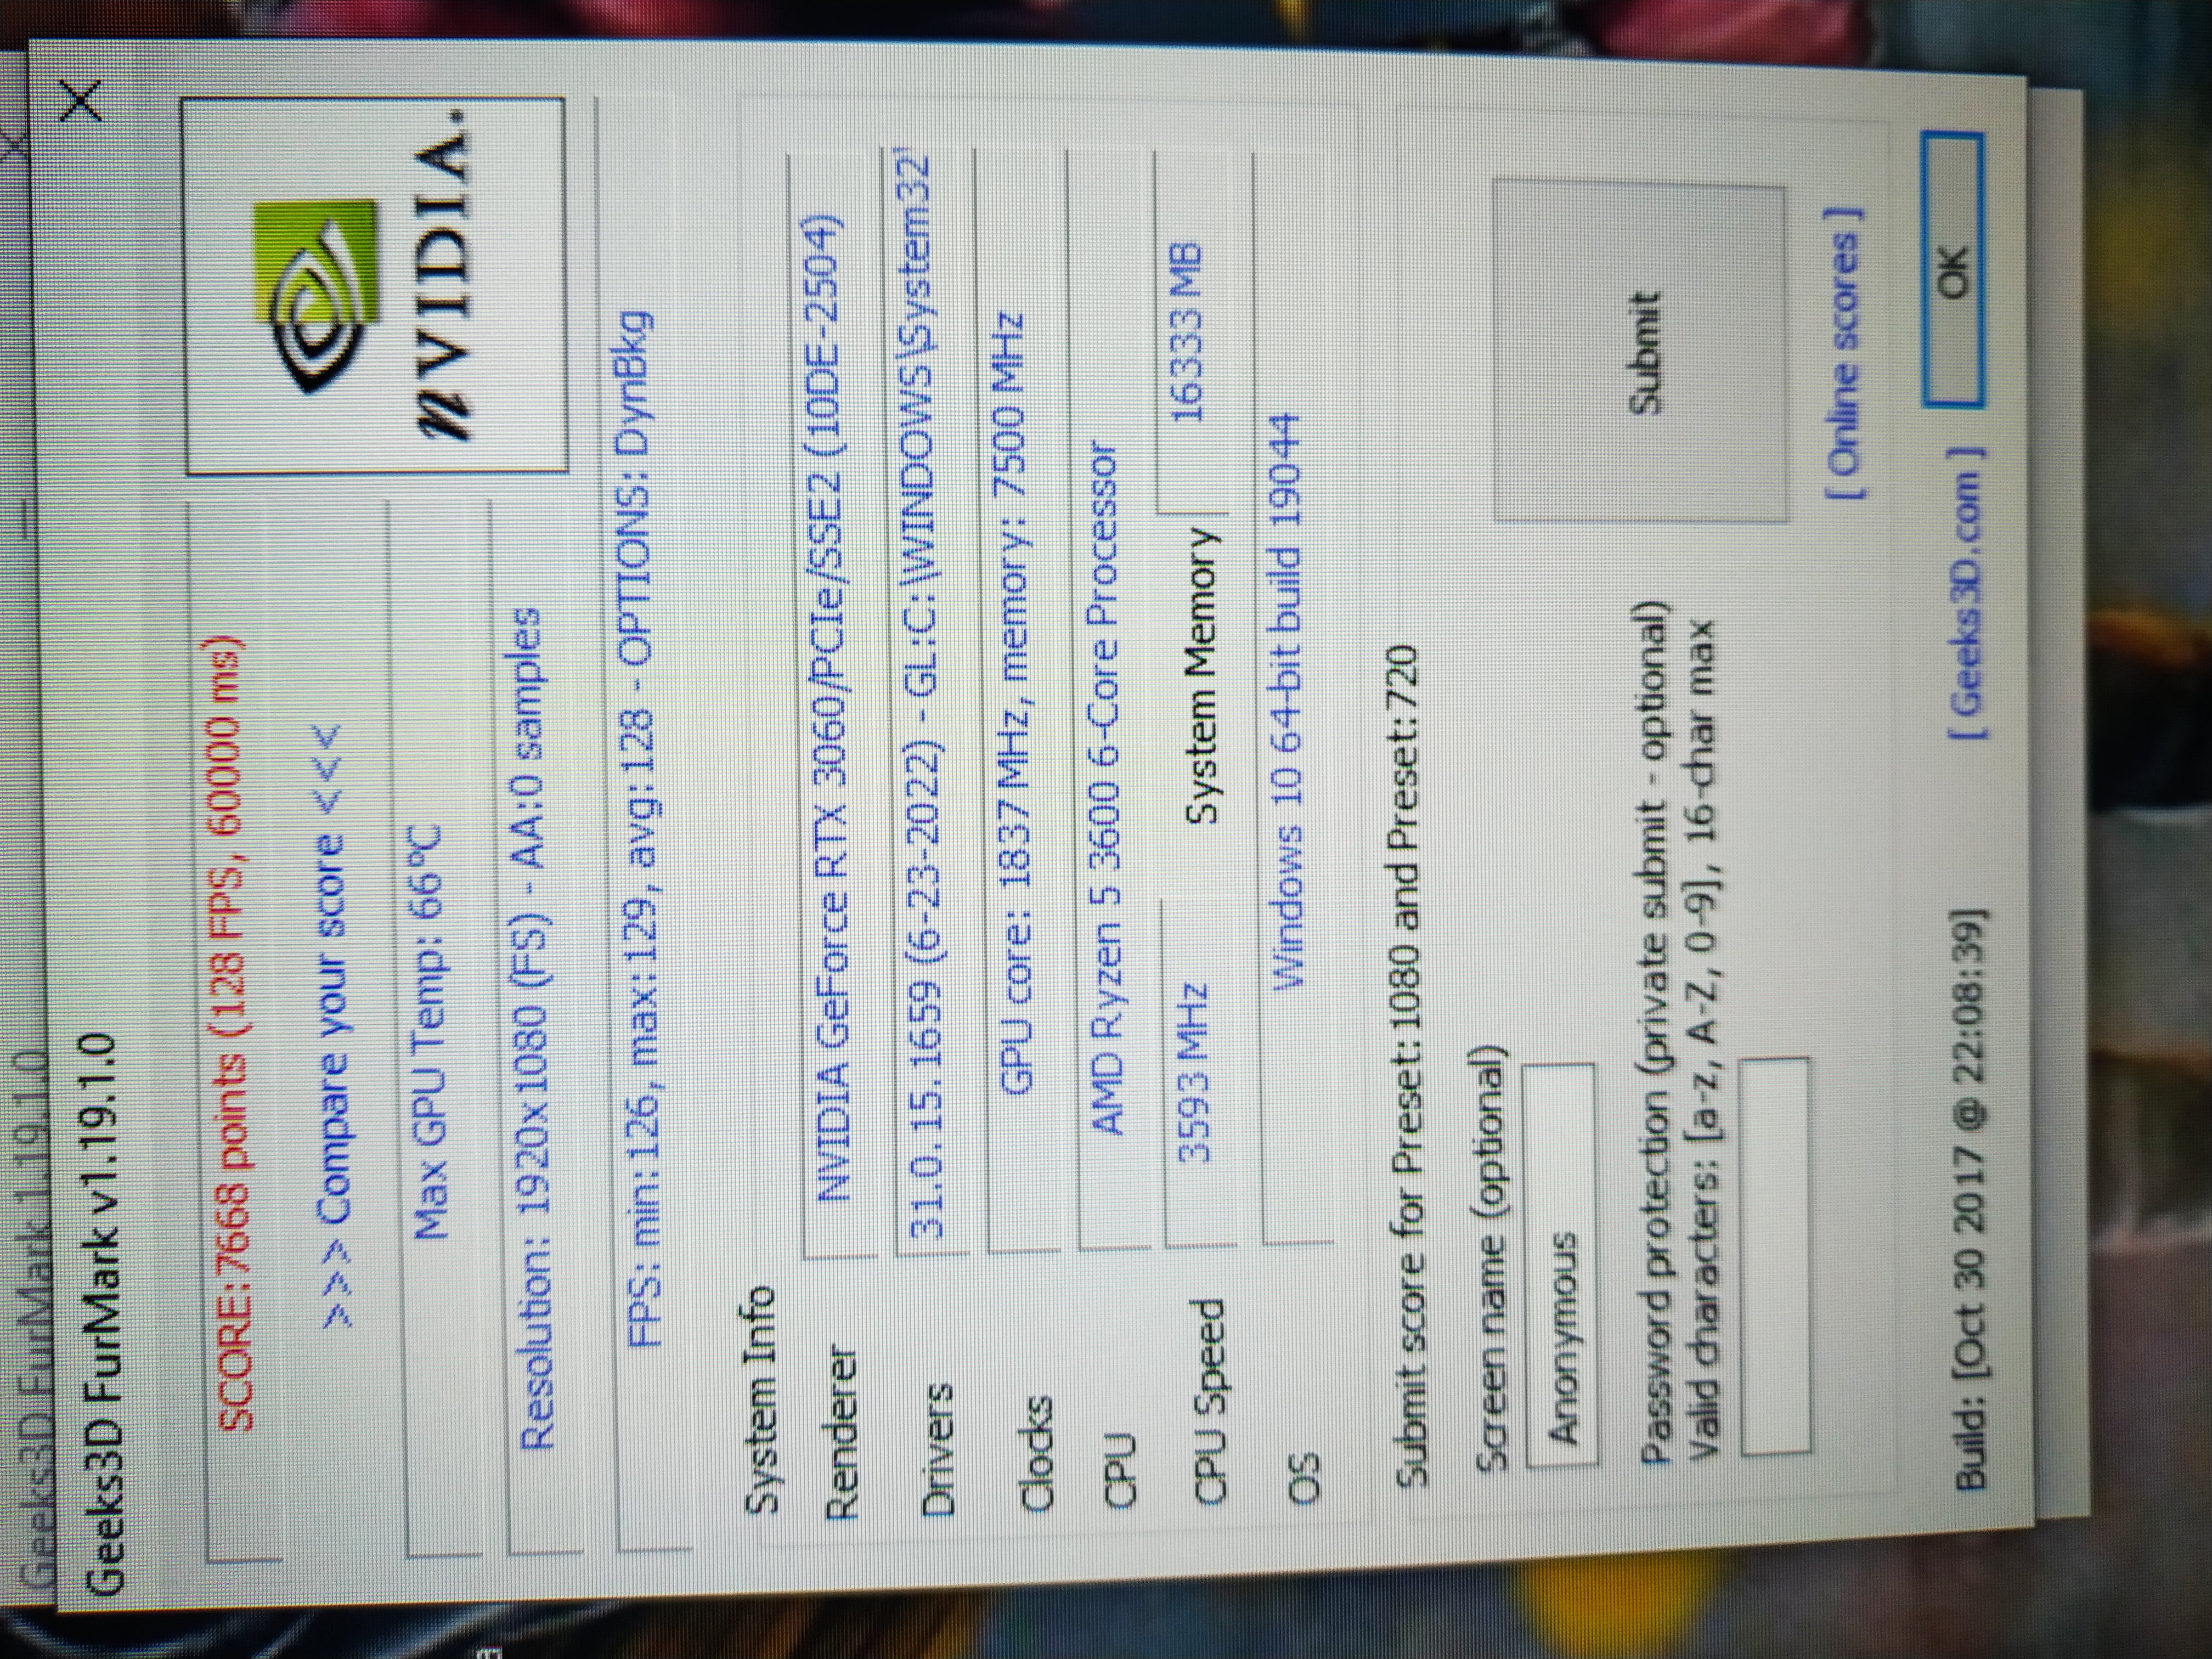 Geeks3D FurMark 1.19.1.0
Geeks3D FurMark v1.19.1.0
SCORE:7668 points (128 FPS, 60000 ms)
>>> Compare your score <<<
Max GPU Temp: 66°C
Resolution: 1920x1080 (FS) - AA:0 samples
FPS: min:126, max:129, avg:128 - OPTIONS: DynBkg
nVIDIA.
System Info
Renderer NVIDIA GeForce RTX 3060/PCIe/SSE2 (10DE-2504)
Drivers 31.0.15.1659 (6-23-2022) - GL:C:\WINDOWS\System32\
Clocks GPU core: 1837 MHz, memory: 7500 MHz
CPU AMD Ryzen 5 3600 6-Core Processor
CPU Speed 3593 MHz System Memory 16333 MB
OS Windows 10 64-bit build 19044
Submit score for Preset:1080 and Preset:720
Screen name (optional)
Anonymous
Submit
Password protection (private submit - optional)
Valid characters: [a-z, A-Z, 0-9], 16-char max
[ Online scores ]
Build: [Oct 30 2017 @ 22:08:39] [ Geeks3D.com ] OK